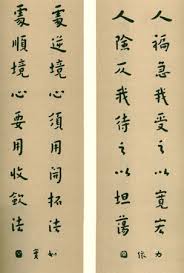 人褊急我受之以寬宏
人險仄我待之以坦蕩
處逆境心須用開拓法
處順境心要用收歛法